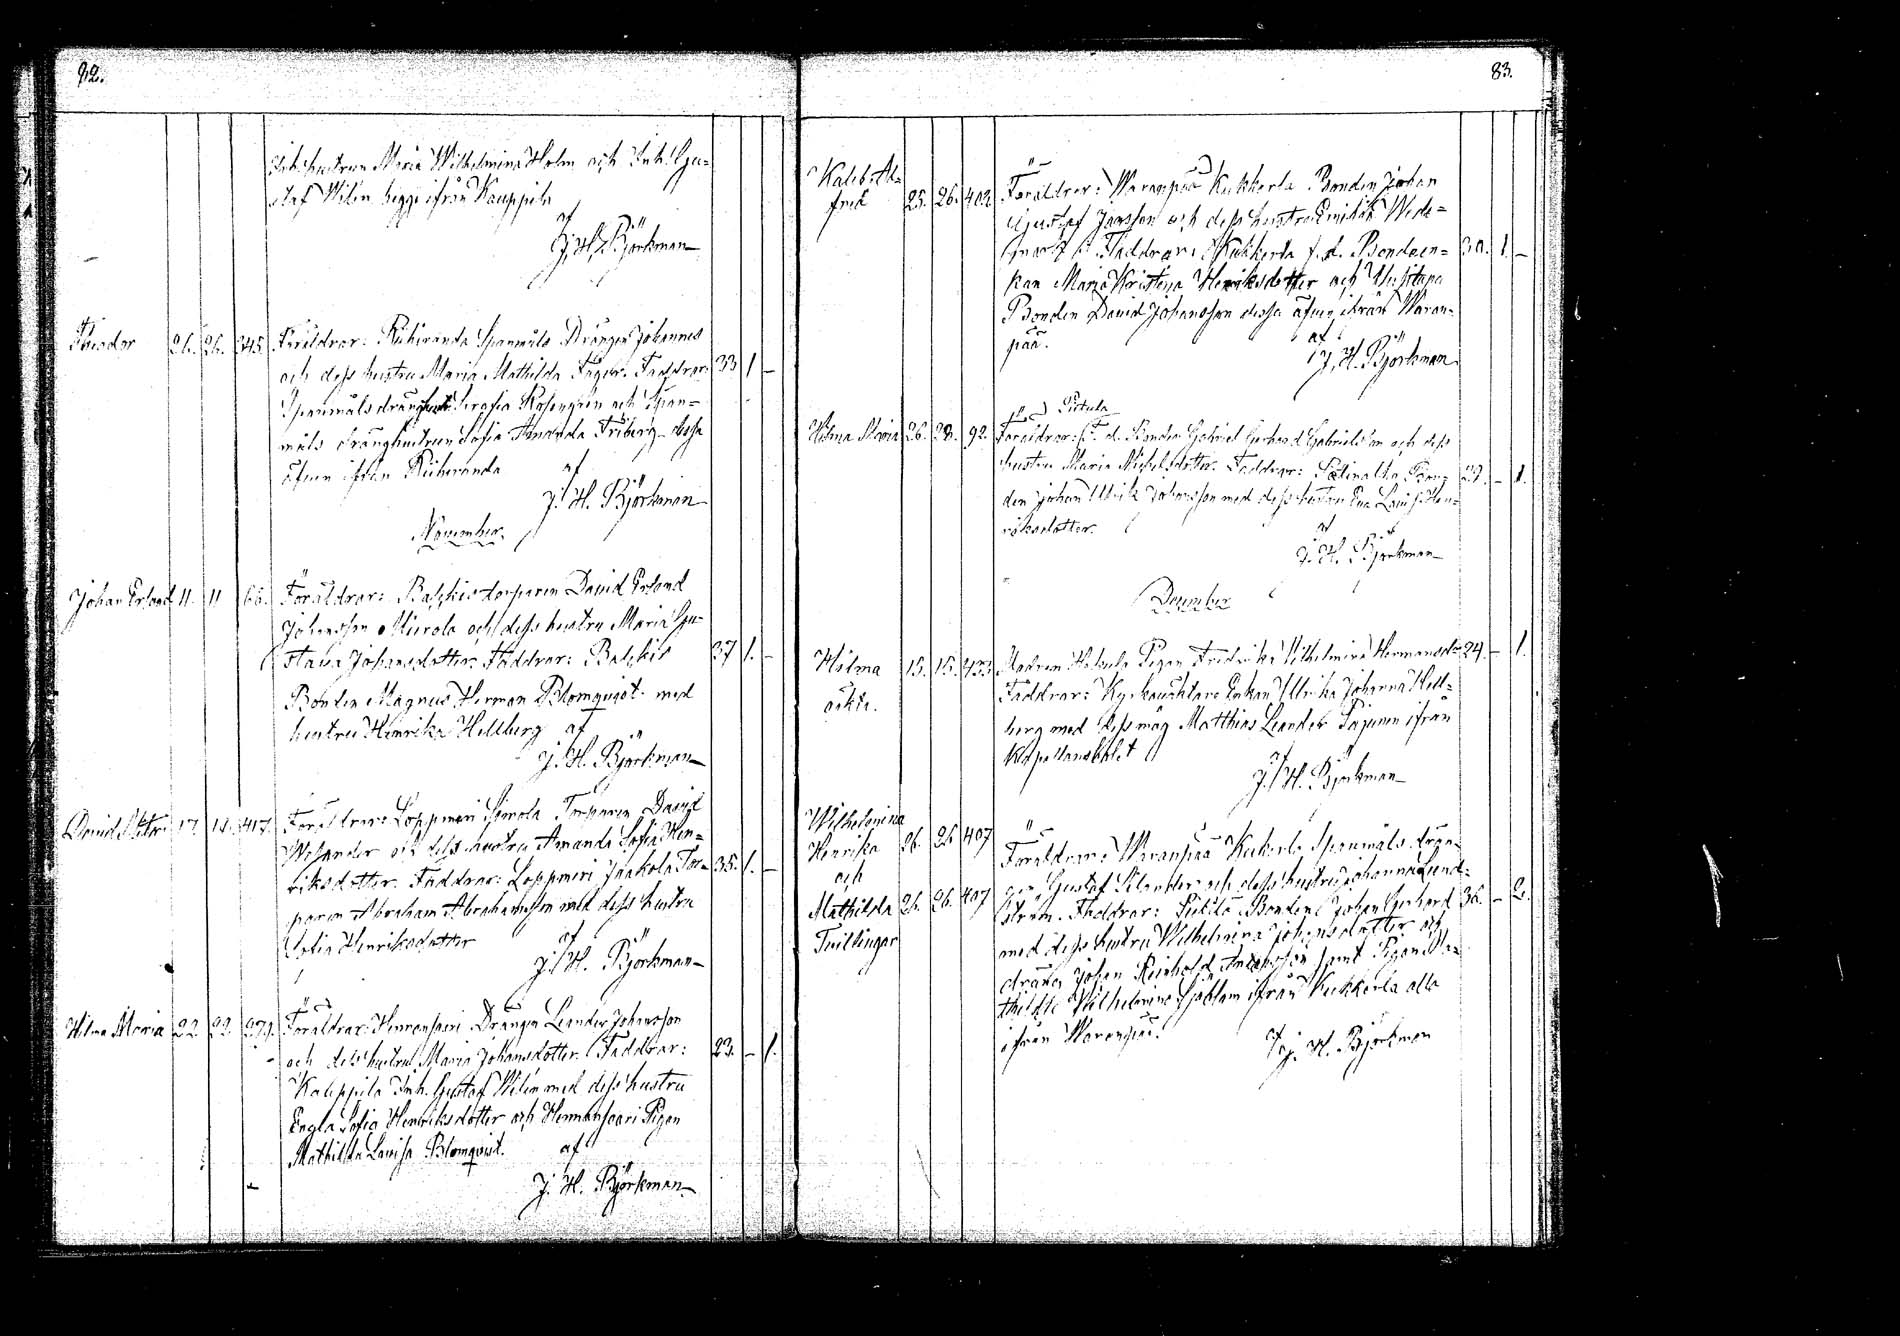 82.
Inh. hustrun Maria Wilhelmina Holm och Inh. Gu=
staf Wilén begge ifrån Kauppila
af
J. H. Björkman
Theodor 26. 26. 345. Föräldrar: Riihiranda Spanmåls Drängen Johannes
och dess hustru Maria Mathilda Fager. Faddrar: 33 1 –
Spanmåls dräng Serafia Rosengrén och Span=
måls dränghustrun Sofia Amanda Friberg dessa
äfven ifrån Riihiranda af
J. H. Björkman
November.
Johan Erland 11. 11 66. Föräldrar: Balzkis torparen David Erland
Johansson Mierola och dess hustru Maria Gu=
stava Johansdotter. Faddrar: Balzkis 37 1. –
Bonden Magnus Herman Blomquist med
hustru Henrika Hellberg af
J. H. Björkman
David 17. 417. Föräldrar: Loppmeri Simola Torparen David
Welander och dess hustru Amanda Sofia Hen=
riksdotter. Faddrar: Loppmeri Jaakola Tor= 35. 1. –
paren Abraham Abrahamsson med dess hustru
Sofia Henriksdotter af
J. H. Björkman
Hilma Maria 22. 22. 279. Föräldrar: Hermansaari Drängen Leander Johansson
och dess hustru Maria Johansdotter. Faddrar: 23. – 1.
Kauppila Inh. Gustaf Wilén med dess hustru
Engla Sofia Henriksdotter och Hermansaari Pigan
Mathilda Lovisa Blomqvist. af
J. H. Björkman
83.
Kaleb Al=
fred 25. 26. 402. Föräldrar: Waranpää Kukkerla Bonden Johan
Gustaf Jansson och dess hustru Emilia Wede=
Faddrar: Kukkerla f.d. Bondeen= 30. 1. –
kan Maria Kristina Henriksdotter och Uusitupa
Bonden David Johansson dessa äfven ifrån Waran=
pää. af
J. H. Björkman
Pietula
Hilma Maria 26. 28. 92. Föräldrar: F. d. Bonden Gabriel Gerhard Gabrielsson och dess
hustru Maria Michelsdotter. Faddrar: Bon= 29. – 1.
den Johan Ulrik Johansson med dess hustru Eva Lovisa Hen=
riksdotter.
af
J. H. Björkman
December
Hilma 15. 15. 433 Modren Hakula Pigan Fredrika Wilhelmina Hermansdr 24. – 1.
oäkta. Faddrar: Kyrkovaktare Enkan Ulrika Johanna Hell=
berg med dess måg Matthias Leander Pajunen ifrån
Kapellansbolet af
J. H. Björkman
Wilhelmina
Henrika 26. 26 407 Föräldrar: Waranpää Kukkerla Spanmåls drän=
och gen Gustaf Silander och dess hustru Johanna Lund=
Mathilda 26. 26. 407 ström. Faddrar: Bonden Johan Gerhard 36. – 2.
Tvillingar med dess hustru Wilhelmina Johansdotter och
drängen Johan Reinhold Andersson samt Pigan Ma=
thilda Wilhelmina Sjöblom ifrån Kukkerla alla
ifrån Waranpää. af
J. H. Björkman